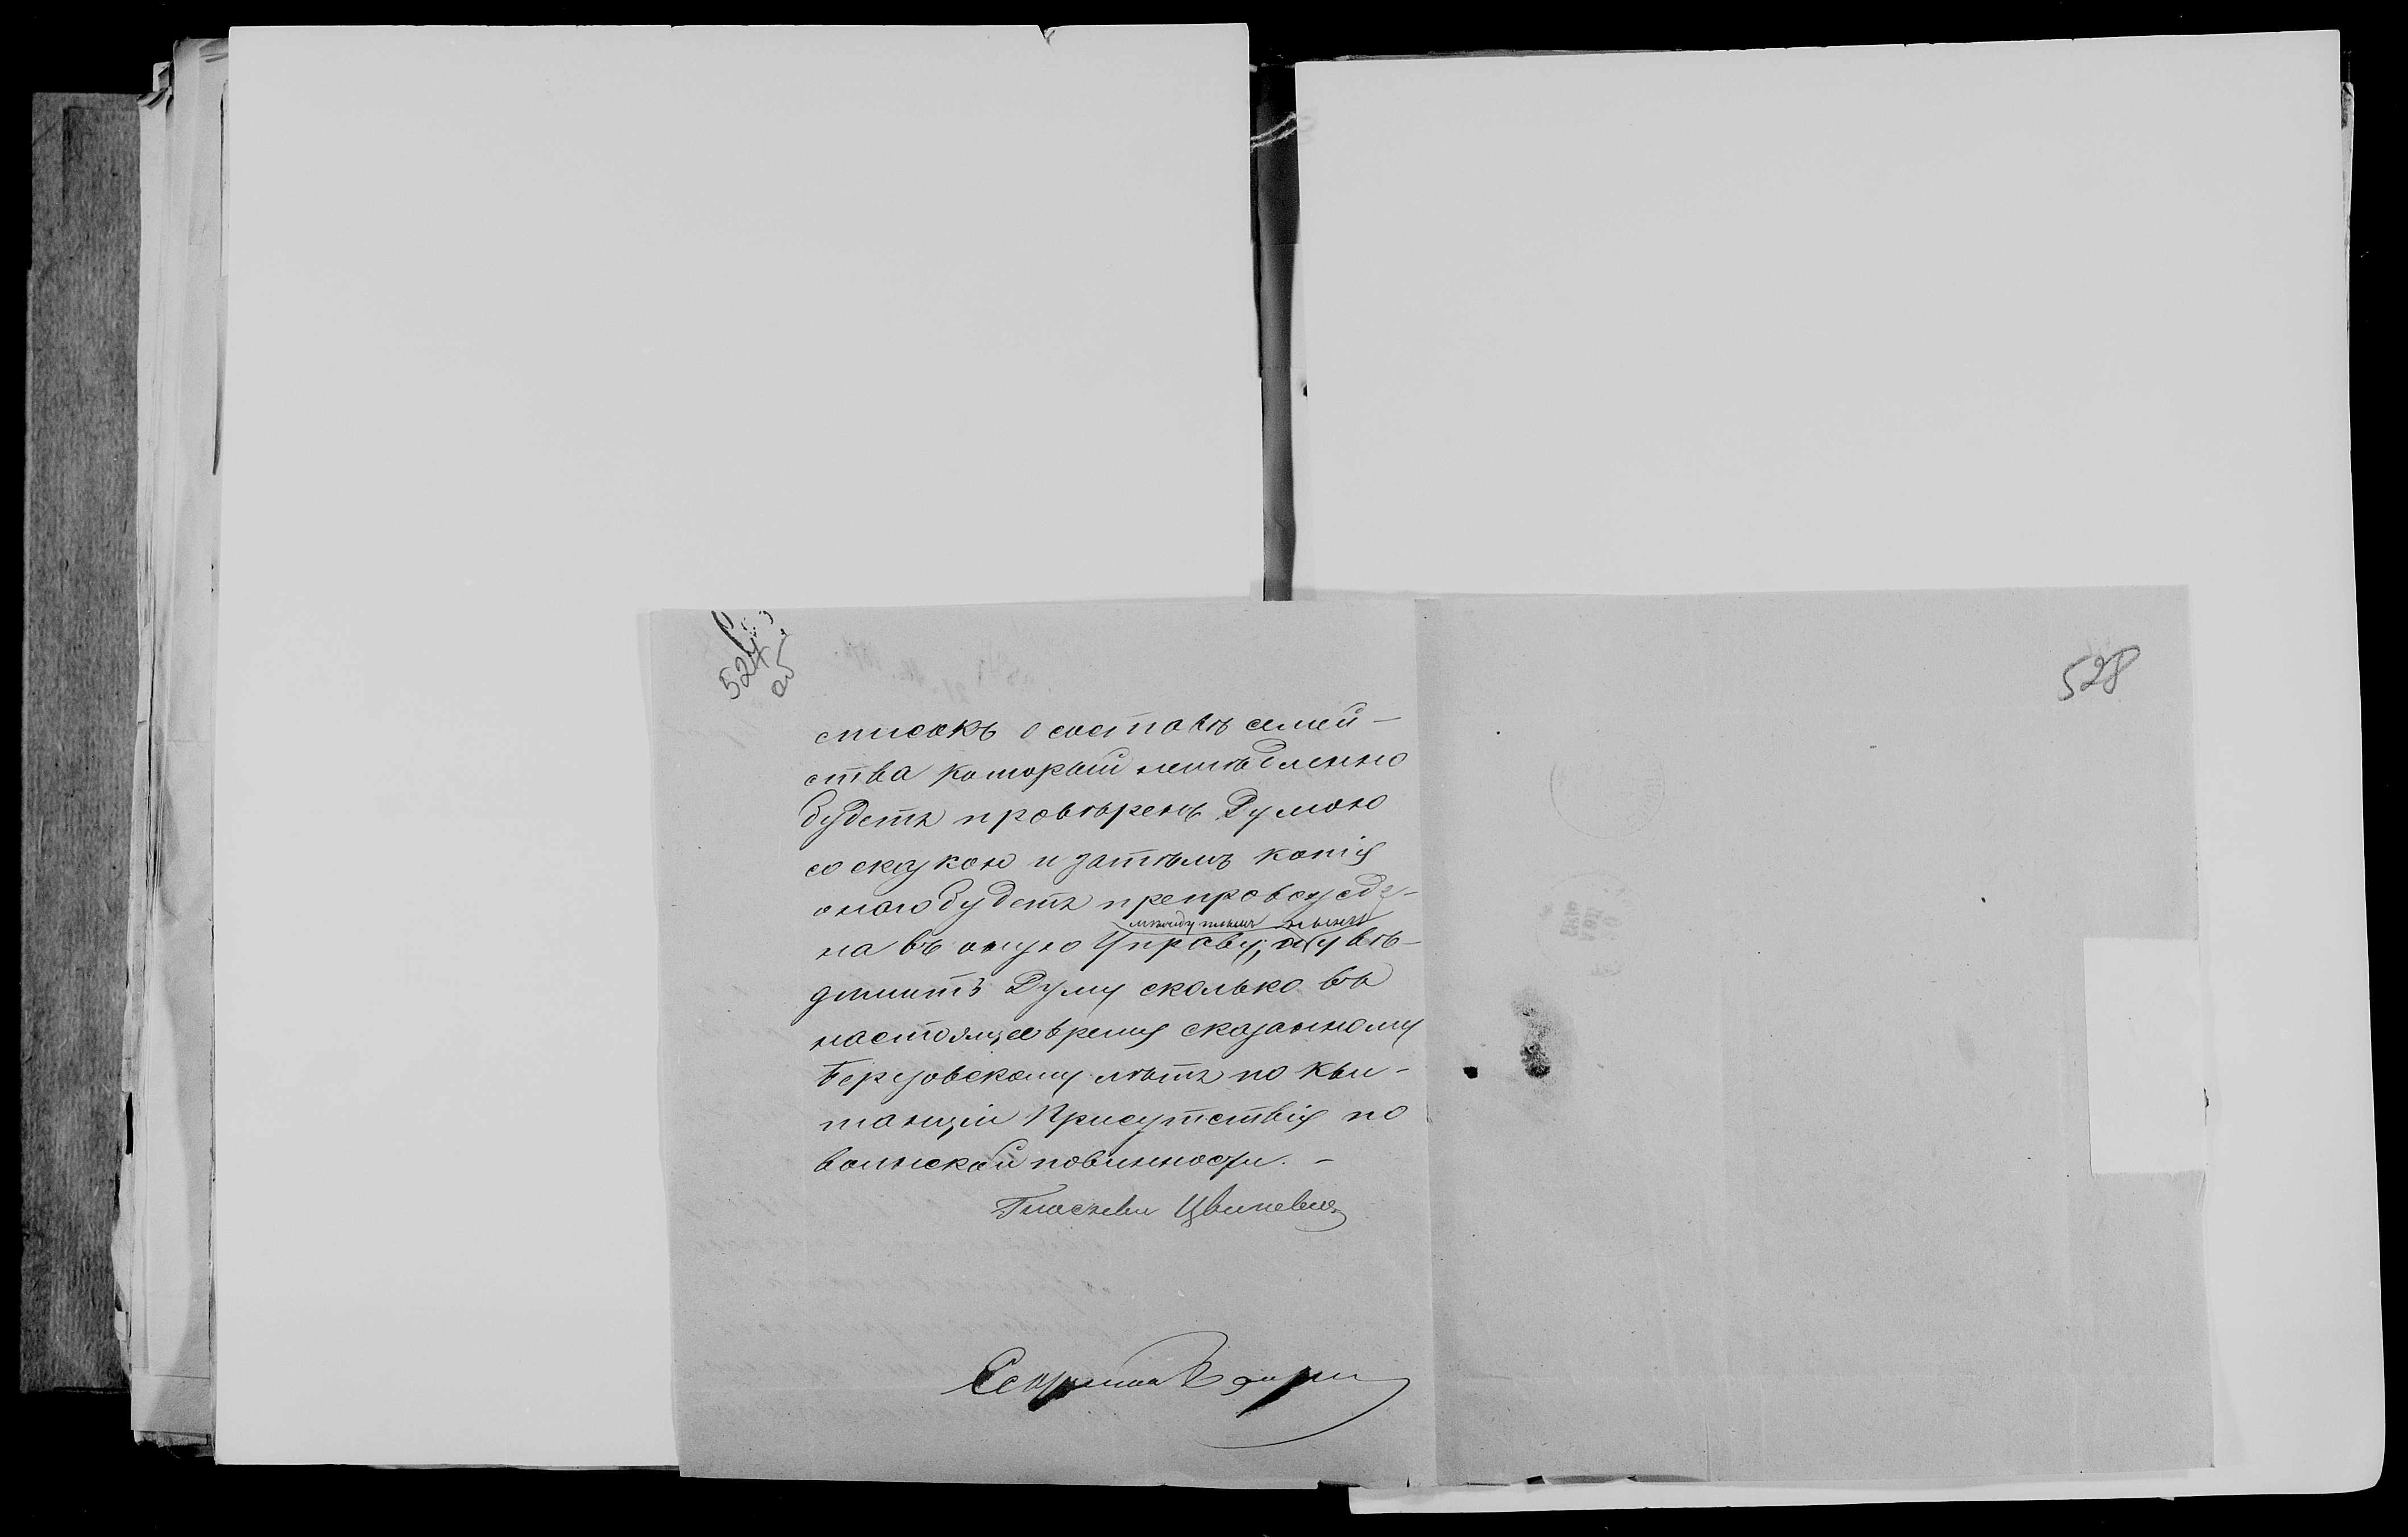 527
об
528
списокъ о составѣ семей-
ства который немѣдленно
будетъ провѣренъ Думою
со сказкою и затѣмъ копія
оного будетъ препровожде-
на въ оную Управу; увѣ-
домитъ Думу сколько въ
настоящее время сказанному
Березовскому лѣтъ по кви-
танціи Присутствія по
воинской повинности. -
Гласный Цвиневъ
Секретарь